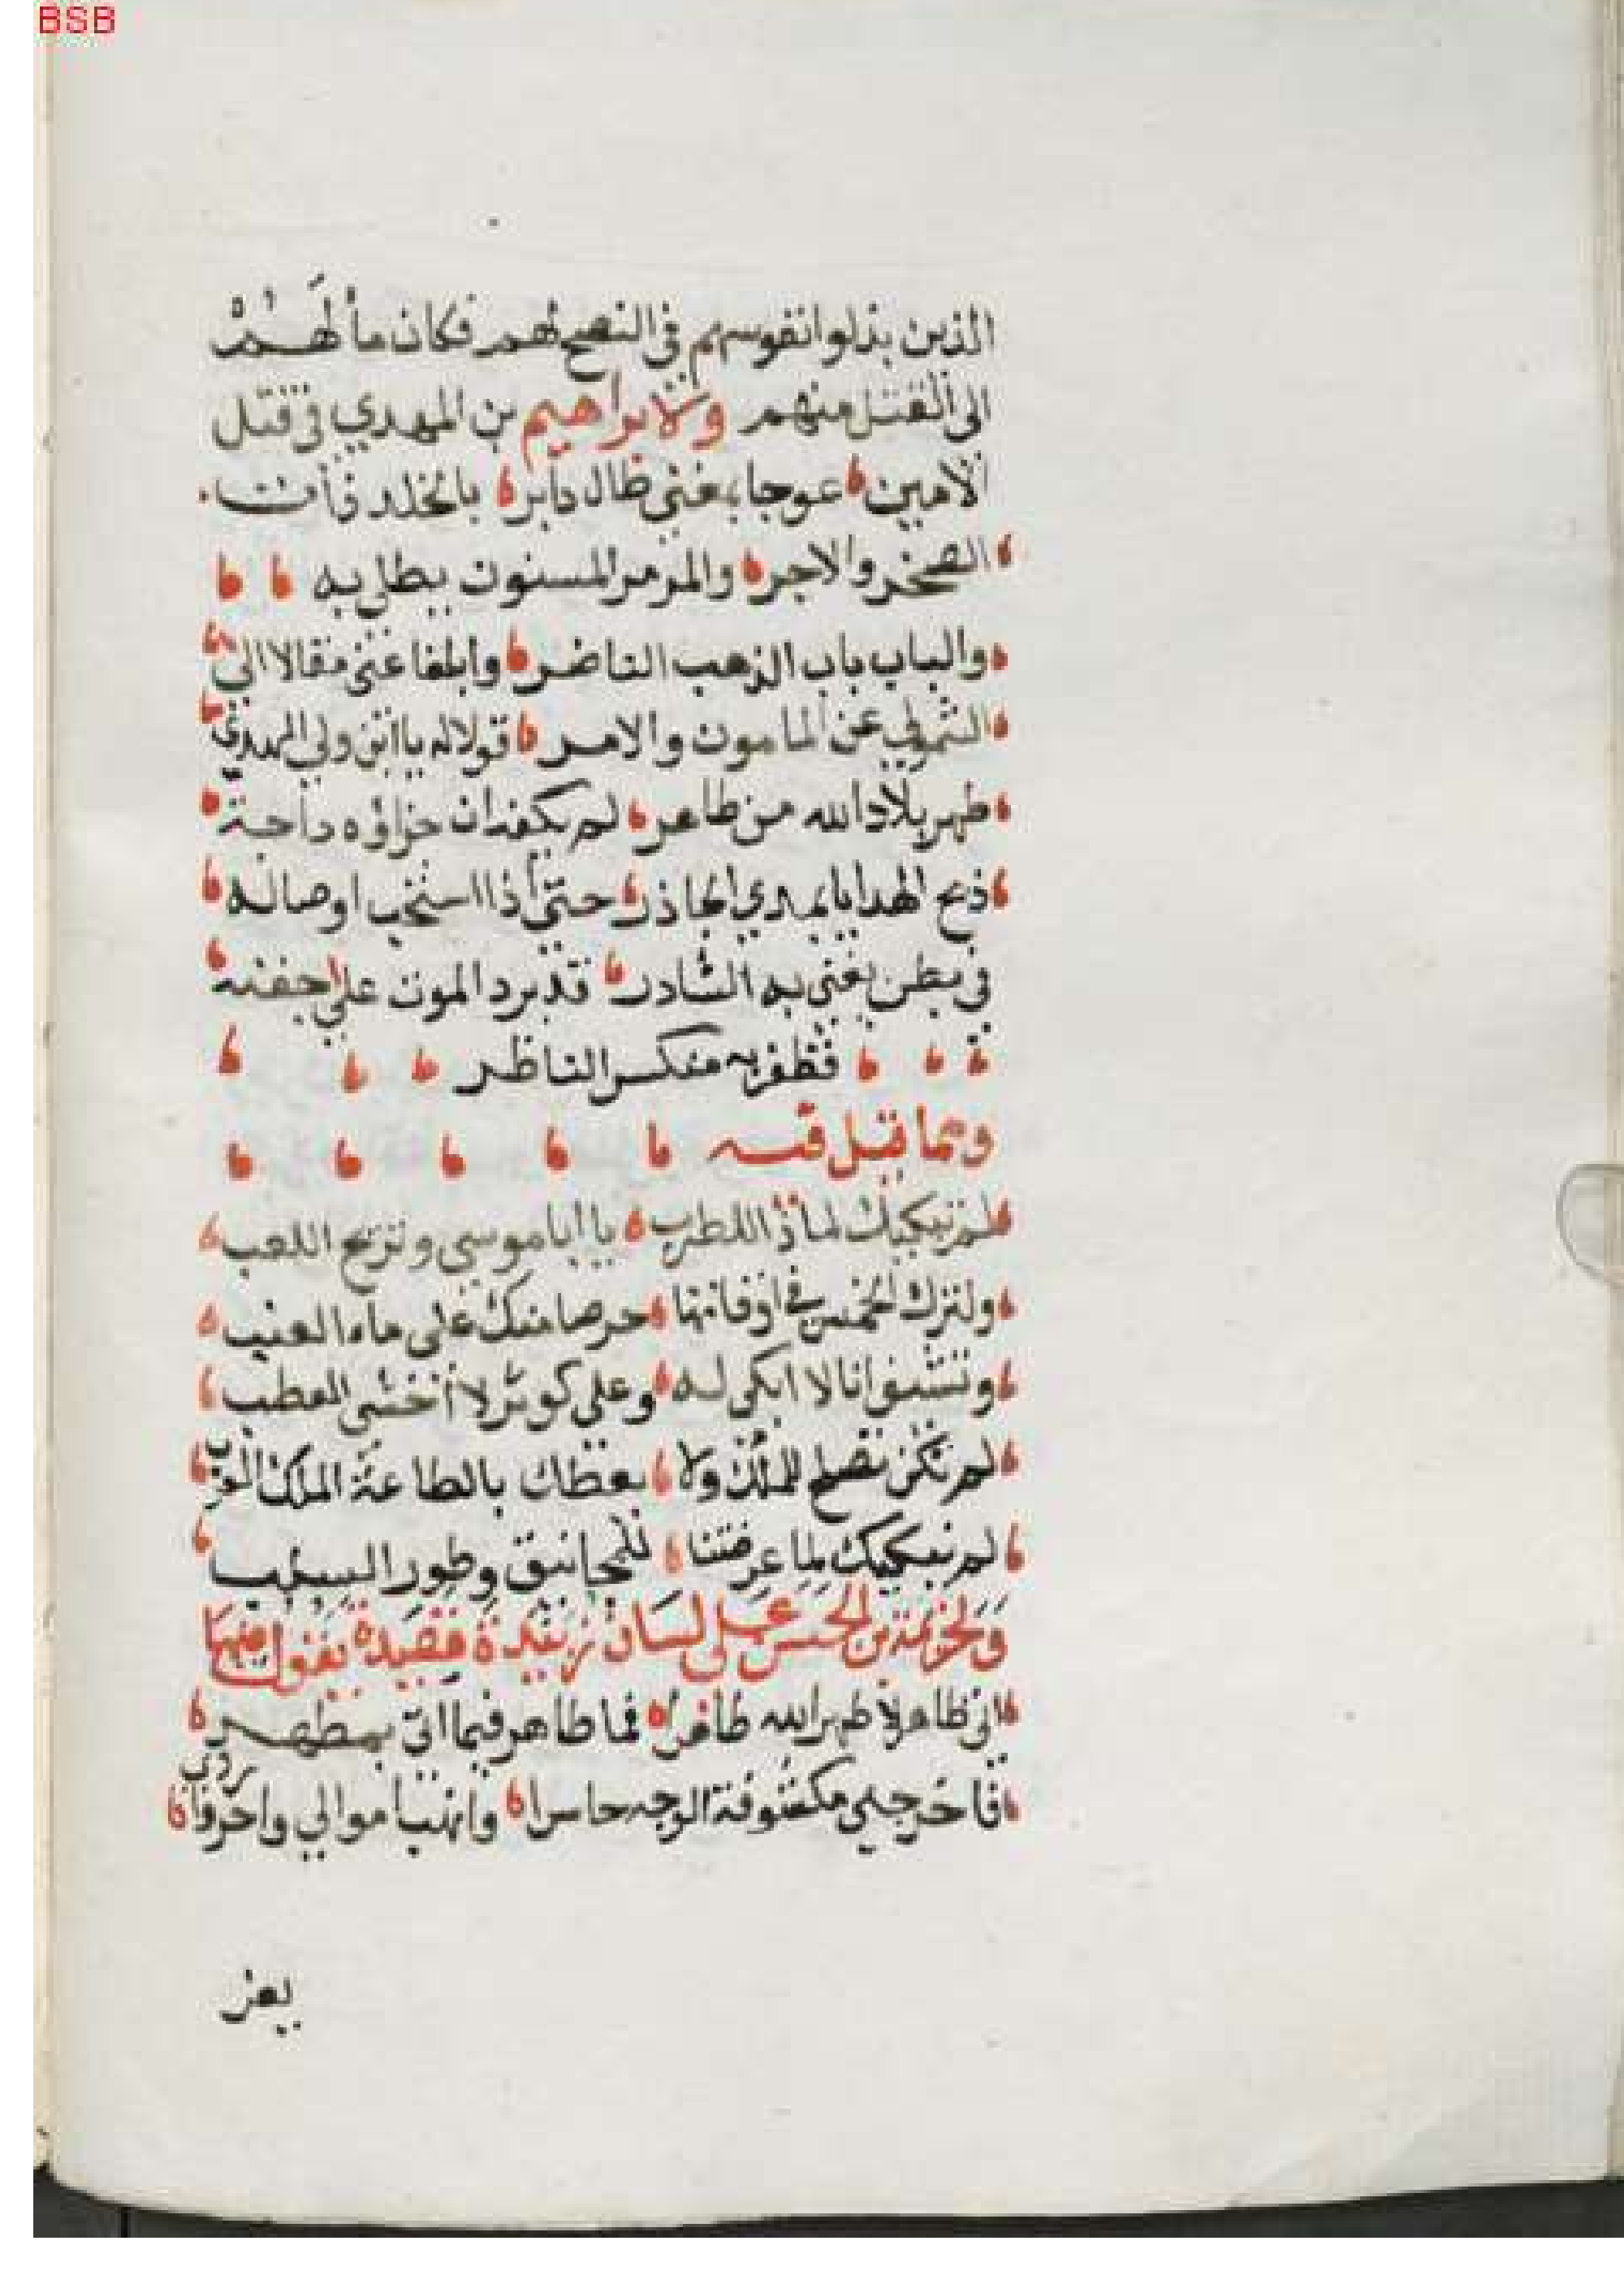 BSB
الذين بذلوا نفوسهم في النصح لهم فكان مآلهم
الى القتل منهم ولابراهيم بن المهدي في قتل
الامين عوجا بمغنى طال داثر بالخلد ذات
الصخر والاجر والمرمر المسنون يطلى به
والباب باب الذهب الناضر وابلغا عني مقالا الى
المولى عن المامون والامر قولا له يا ابن ولي المهدي
طهر بلاد الله من طاهر لم يكفه ان حز اوداجه
ذبح الهدايا بمدي الجاذر حتى اذا اوصاله
في بطن يغنى به الشادر قد برد الموت على جفنه
فطفر به منكسر الناظر
ومما قيل فيه
لم نبكيك لماذا للطرب يا ابا موسى وترويج اللعب
ولترك الخمس في اوقاتها حرصا منك على ماء العنب
وشنيف انا لا ابكي له وعلى كوثر لا اخشى العطب
لم تكن تصلح للملك ولا بعطك بالطاعة الملك العرب
لم نبكيك لما عرضتنا للمجانيق وطور السلب
ولخزيمة بن الحسن على لسان زبيدة قصيدة يقول منها
اتى طاهر لا طهر الله طاهرا فما طاهر فيما اتى بمطهر
فاخرجني مكشوفة الوجه حاسرا وانهب اموالي واحرق ادري
يعز